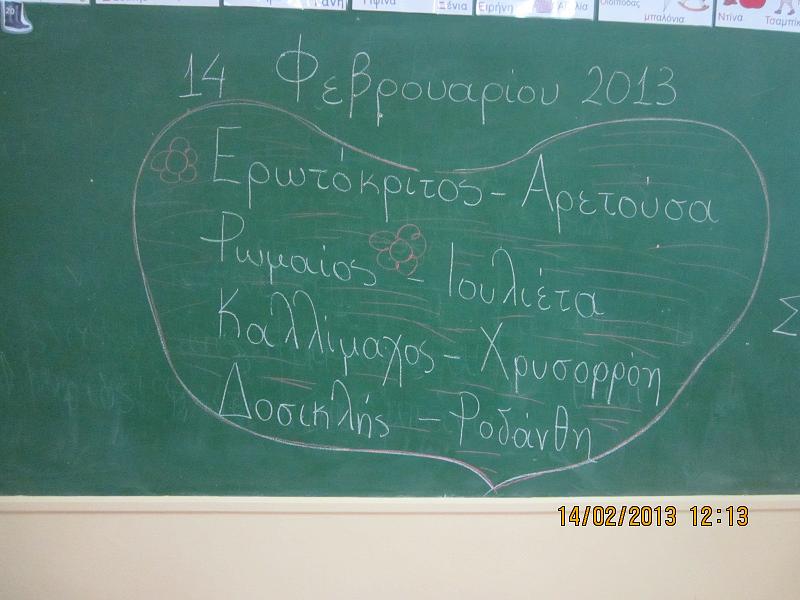 Ξένια Ειρήνη
μπαλόνια Ντίνα
14 Φεβρουαρίου 2013
Ερωτόκριτος - Αρετούσα
Ρωμαίος - Ιουλιέτα
Καλλίμαχος - Χρυσορρόη
Δοσικλής - Ροδάνθη
Σ
14/02/2013 12:13